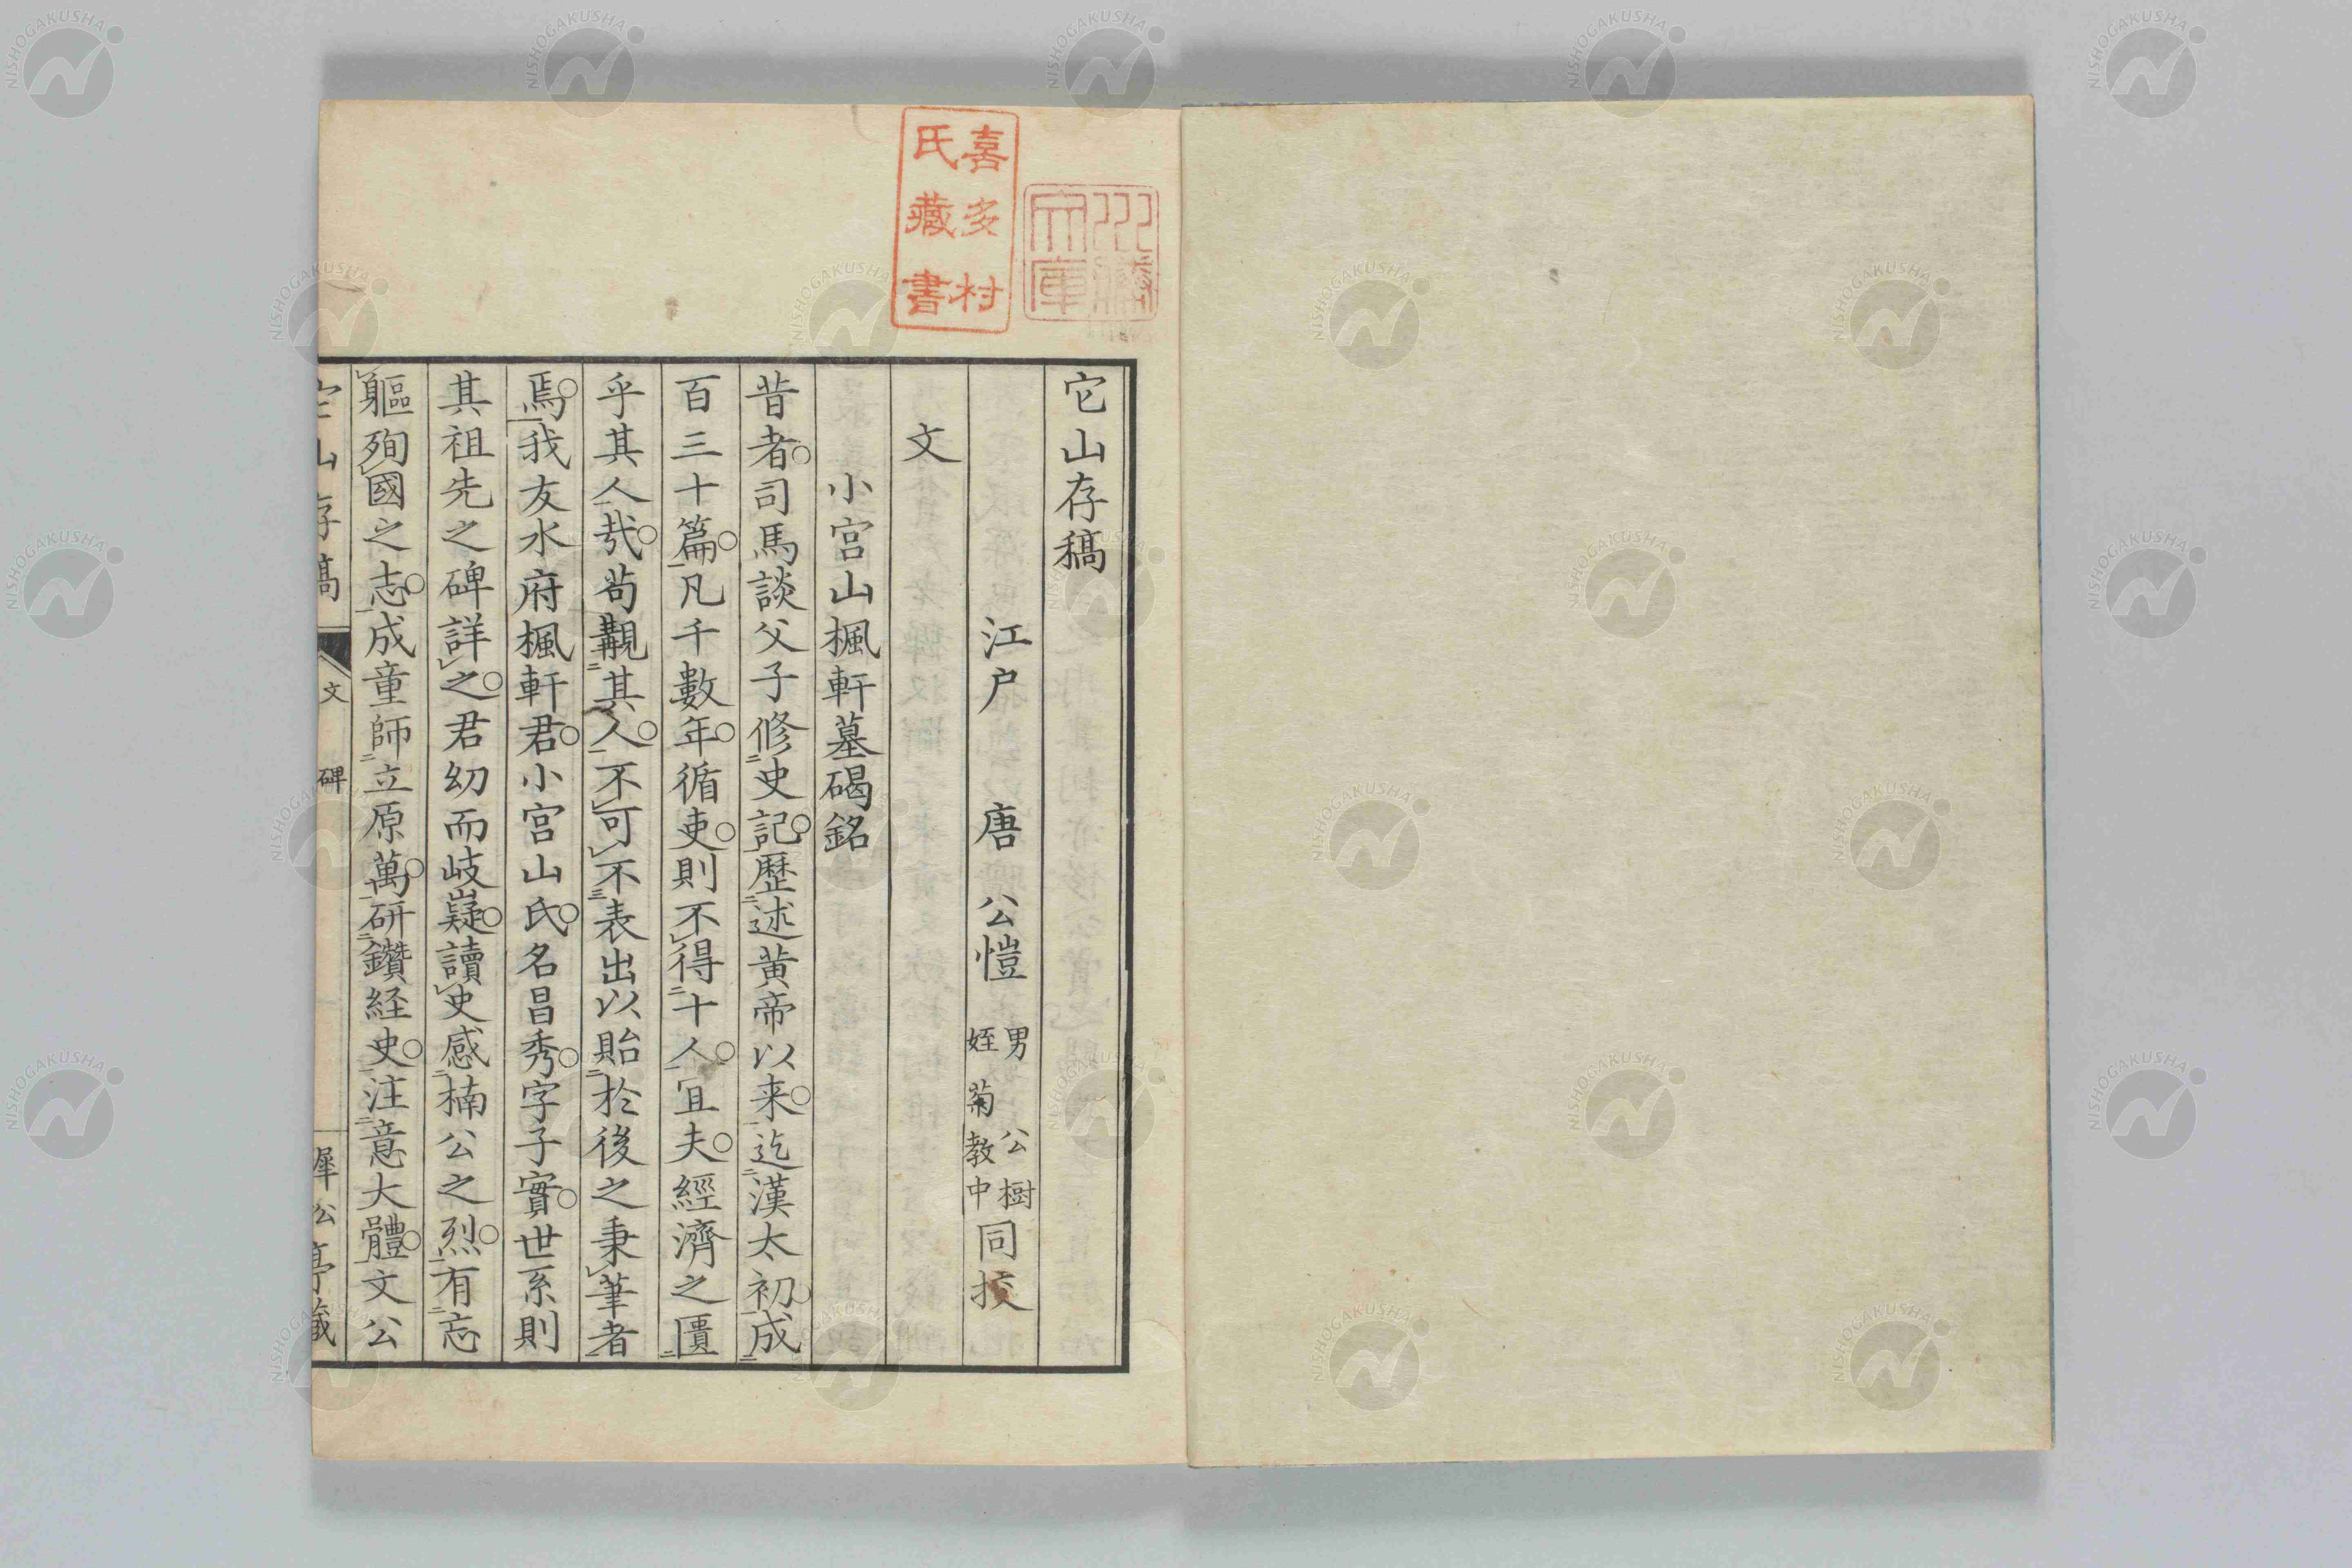 喜多村
氏藏書
文庫
它山存稿
江戸 唐 公愷 男 公樹 姪 菊教中 同挍
文
小宮山楓軒墓碣銘
昔者司馬談父子修史記歷述黃帝以来迄漢太初成
百三十篇凡千數年循吏則不得十人宜夫經濟之匱
乎其人㢤苟覯其人不可不表出以貽於後之秉筆者
焉我友水府楓軒君小宮山氏名昌秀字子實世系則
其祖先之碑詳之君幼而岐嶷讀史感楠公之烈有忘
軀殉國之志成童師立原萬研鑽経史注意大體文公
它山存稿 文 碑 犀公亭藏
NISHOGAKUSHA